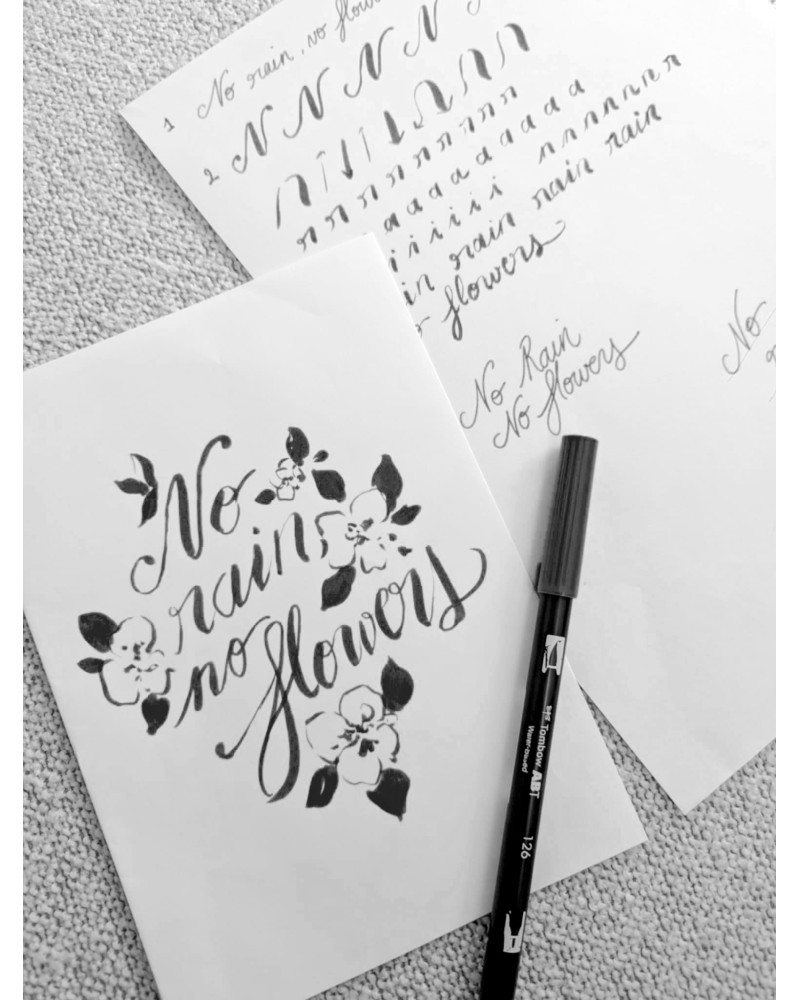 1 No rain, no flow
2 N N N N
r r r r r r r r r
a a a a a a a a a
i i i i i i n n n n n n n
in rain rain rain
flowers
No Rain
No flowers
No
No
rain,
no flowers
Tombow ABT
Water-based
126